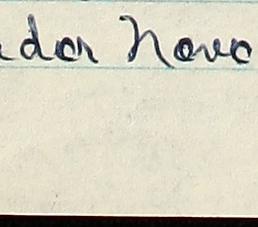 dor Novo